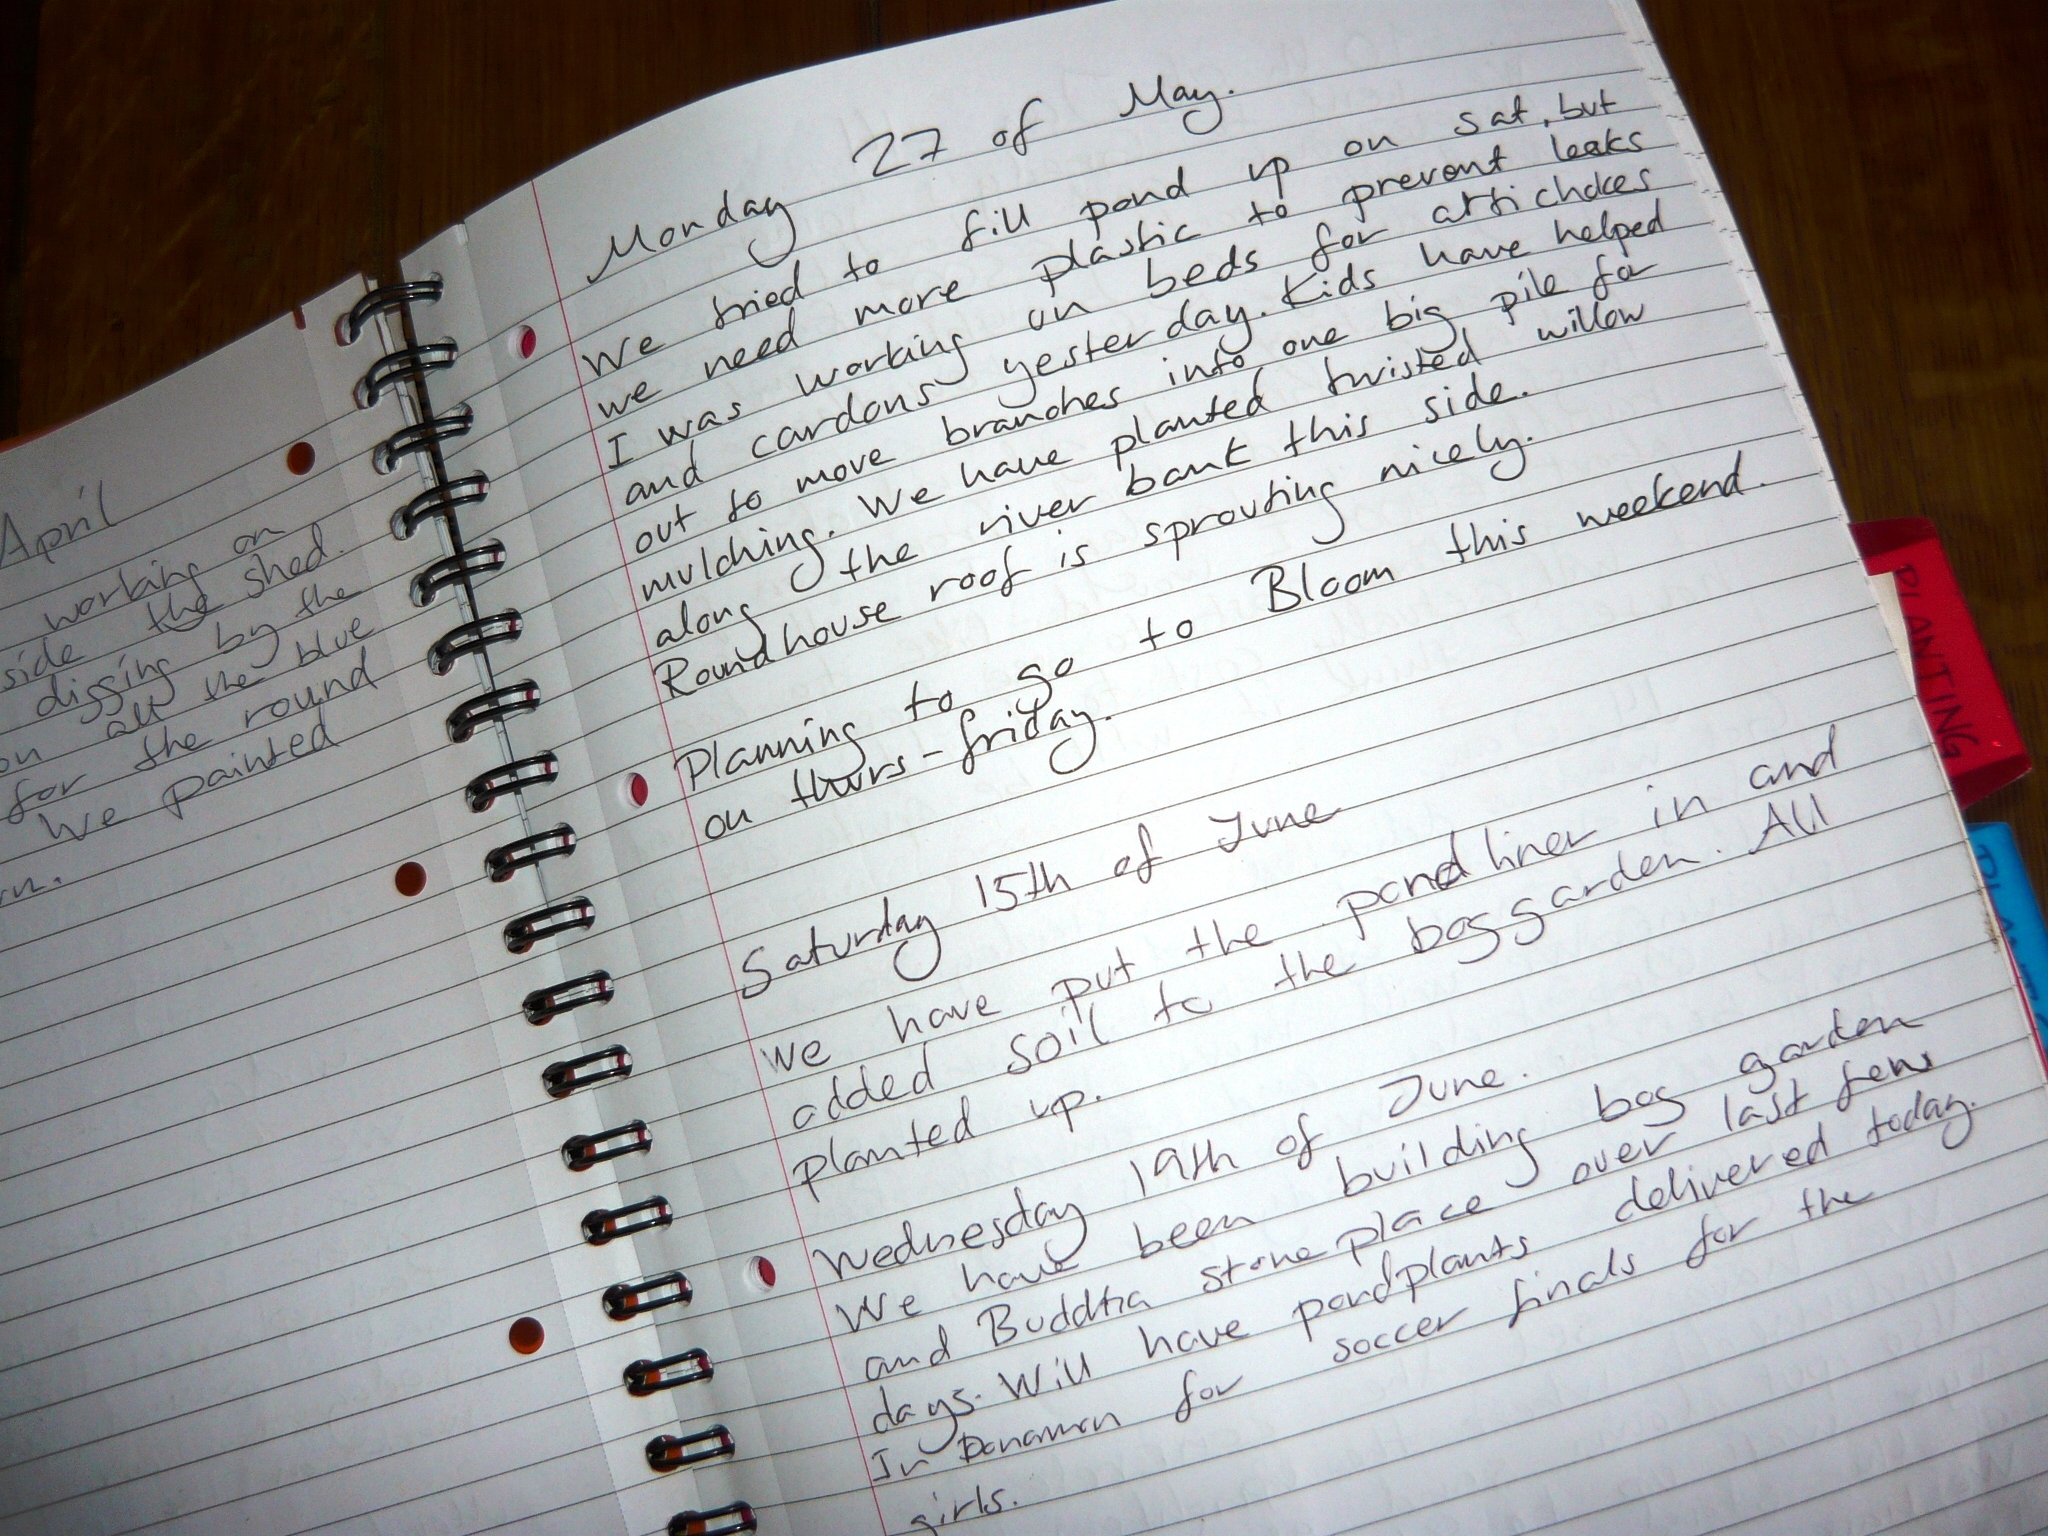 April
working on
side the shed.
digging by the
on all the blue
for the round
We painted
rn.
Monday 27 of May.
We tried to fill pond up on sat, but
we need more plastic to prevent leaks
I was working on beds for artichokes
and cardons yesterday. Kids have helped
out to move branches into one big pile for
mulching. We have planted twisted willow
along the river bank this side.
Roundhouse roof is sprouting nicely.
Planning to go to Bloom this weekend.
on thurs-friday.
Saturday 15th of June
We have put the pond liner in and
added soil to the boggarden. All
planted up.
Wednesday 19th of June.
We have been building bog garden
and Buddha stone place over last few
days. Will have pondplants delivered today.
In Donamon for soccer finals for the
girls.
PLANTING